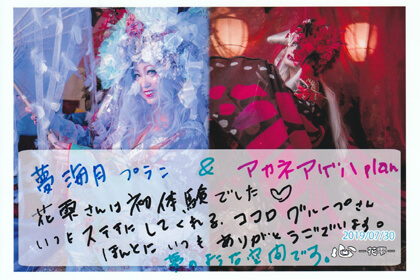 夢海月プラン & アカネアゲハplan
花雫さんは初体験でした♡
いつもステキにしてくれる、ココログループさん
ほんとに、いつもありがとうございます。
夢の様な空間です。
2019/07/30
心-花雫-